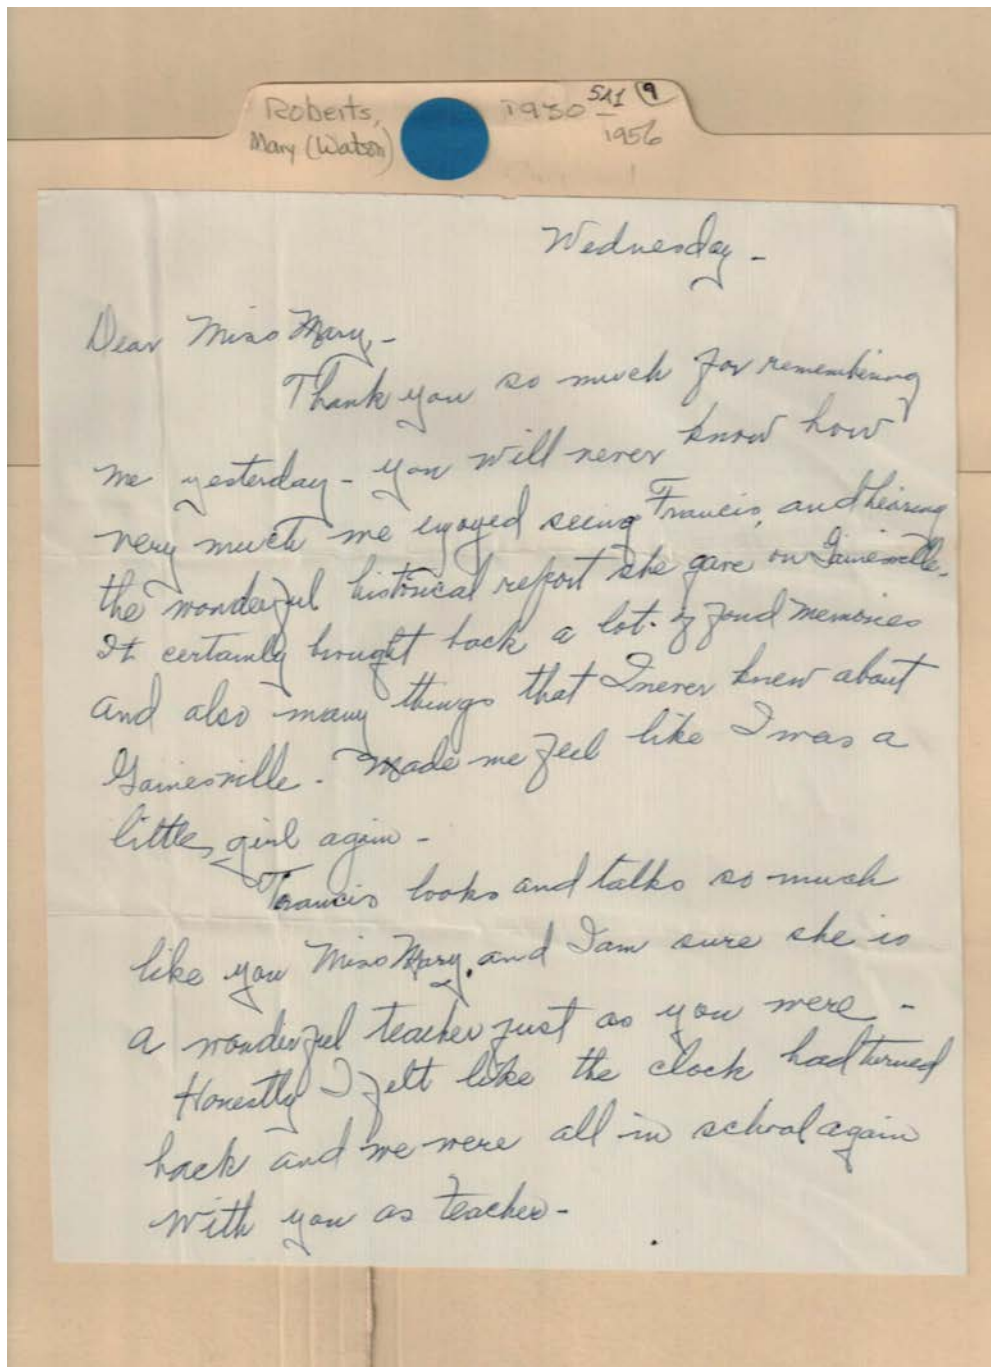 Roberts,
Mary (Watson)
1930 – 1956
5A1 9
Wednesday -
Dear Miss Mary, -
Thank you so much for remembering
me yesterday - you will never know how
very much we enjoyed seeing Francis, and hearing
the wonderful historical report she gave on Gainesville.
It certainly brought back a lot of fond memories
and also many things that I never knew about
Gainesville. Made me feel like I was a
little girl again -
Francis looks and talks so much
like you Miss Mary, and I am sure she is
a wonderful teacher just as you were -
Honestly I felt like the clock had turned
back and we were all in school again
with you as teacher -